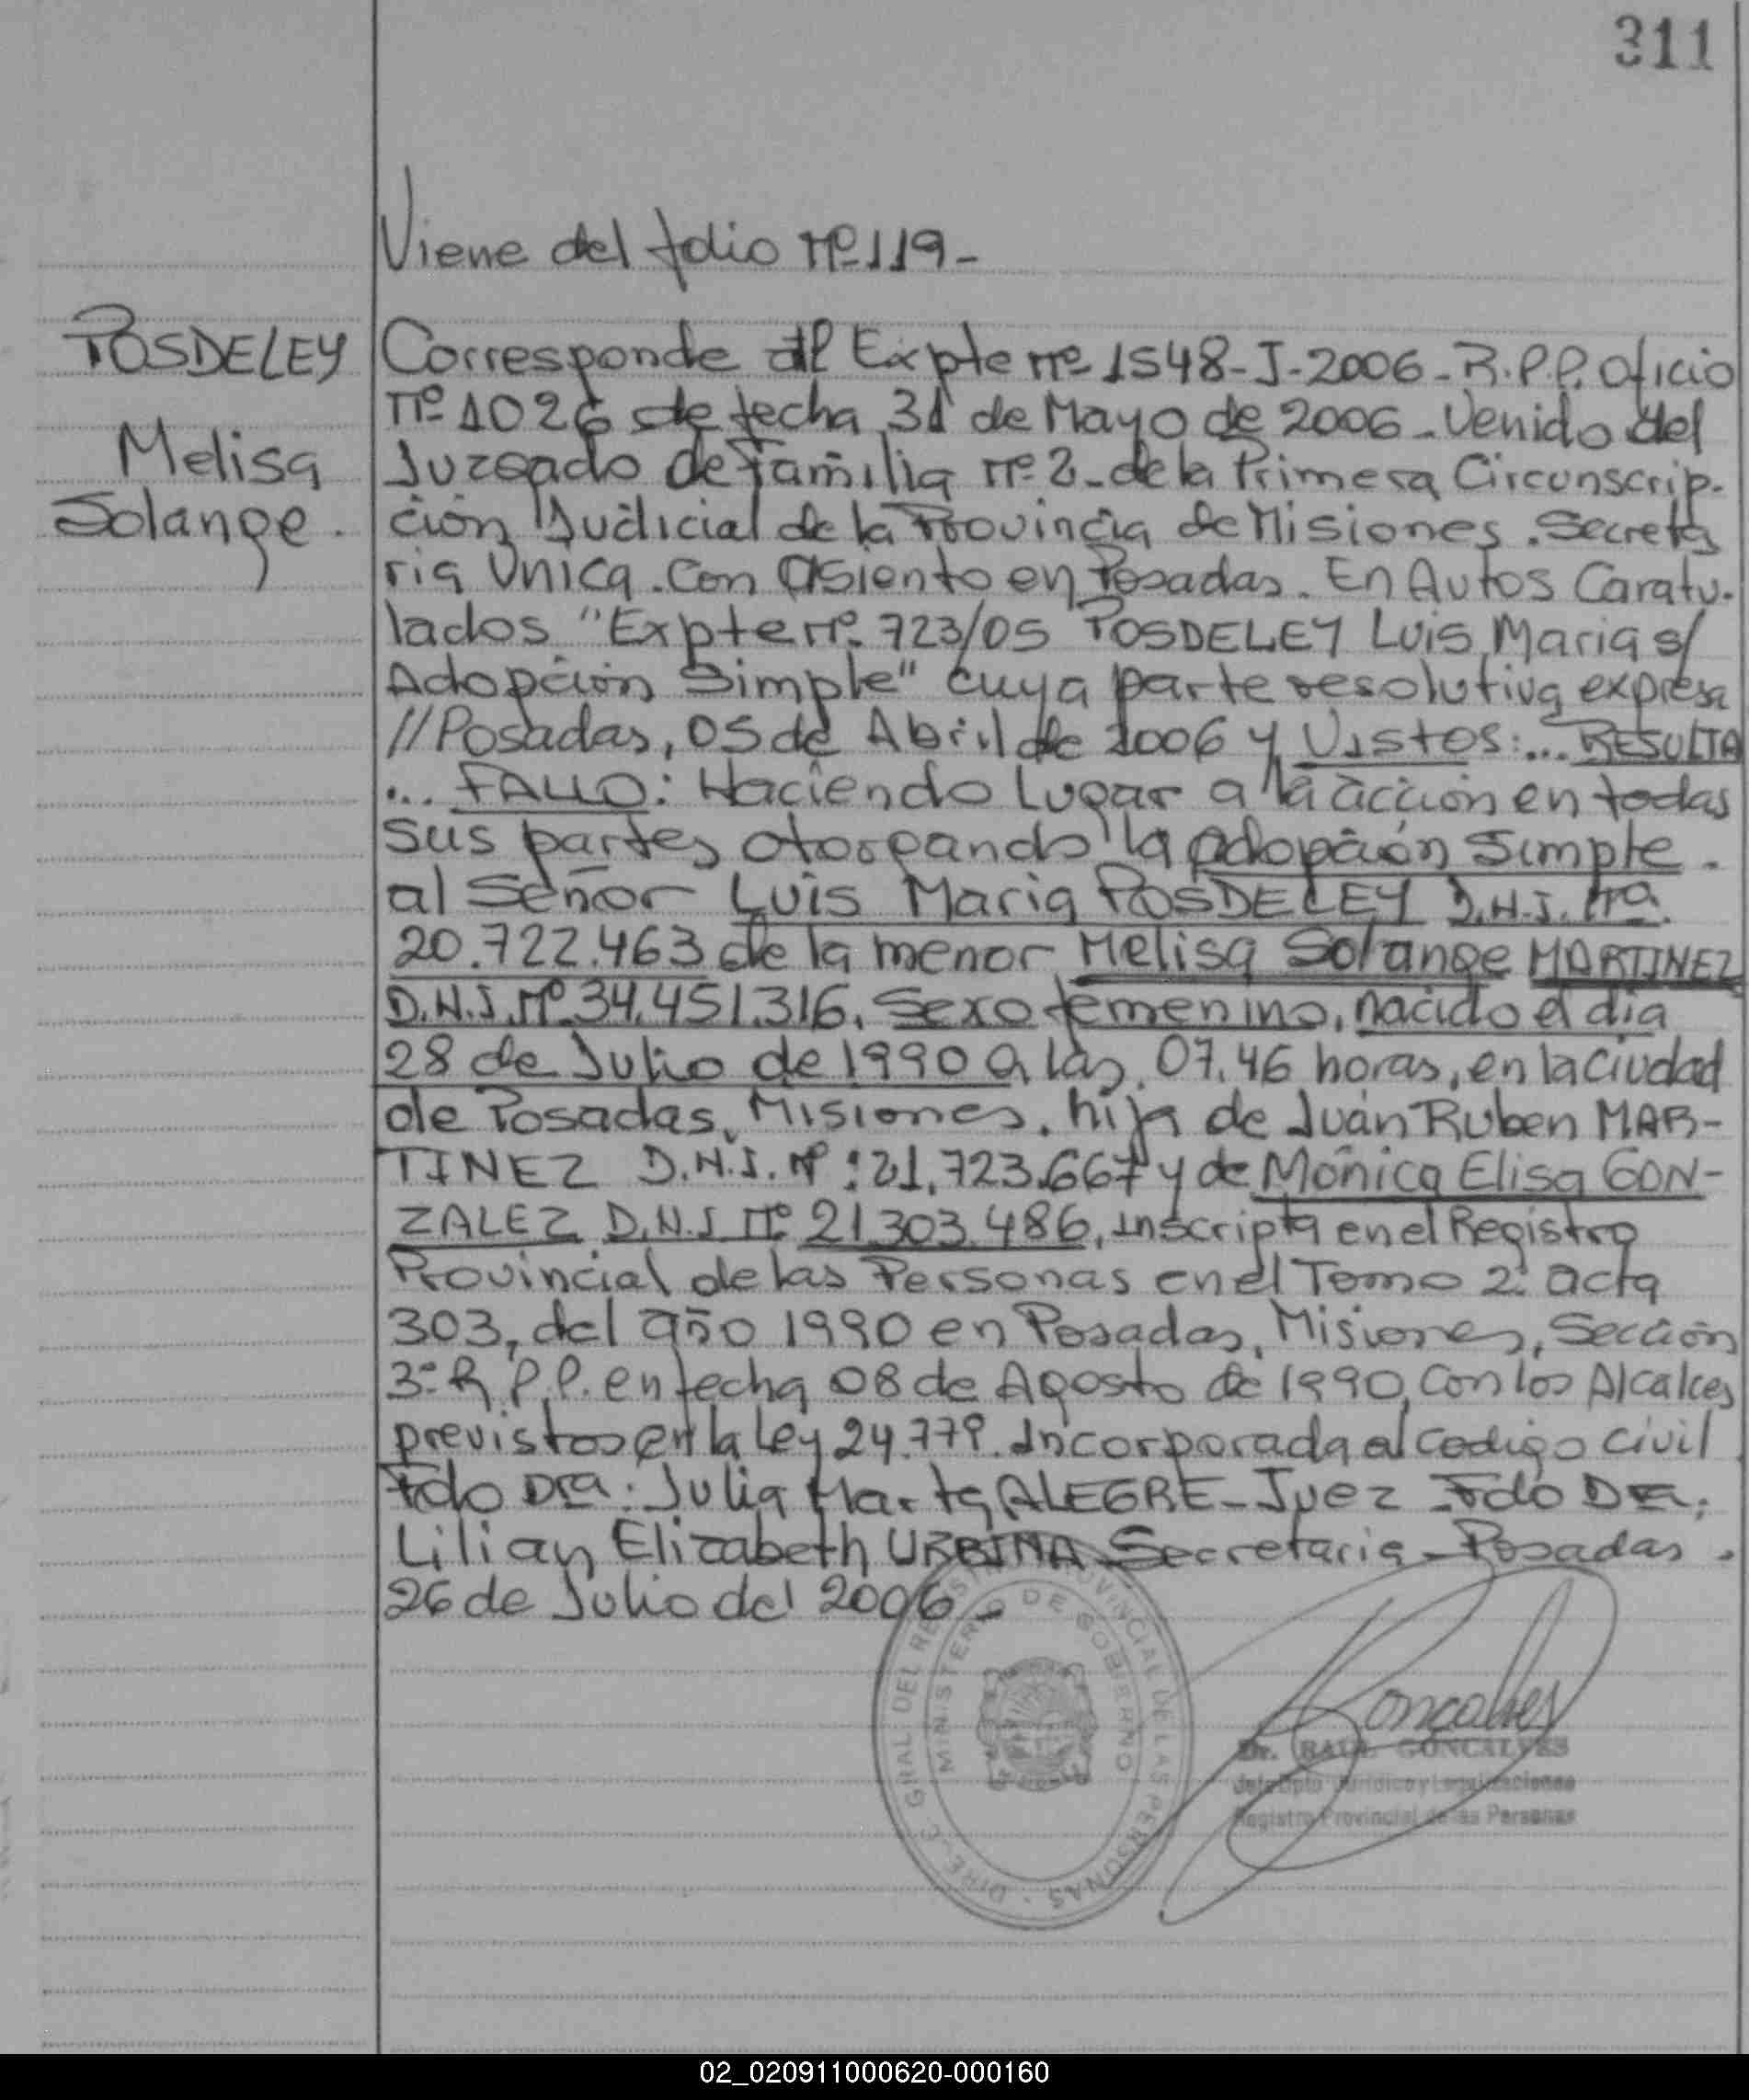 311
Viene del folio Nº 119-
POSDELEY
Melisa
Solange.
Corresponde al Expte nº 1548-J-2006-R.P.P. Oficio
nº 1026 de fecha 31 de Mayo de 2006-Venido del
Juzgado de Familia nº 2-de la Primera Circunscrip-
ción Judicial de la Provincia de Misiones. Secreta
ria Unica. Con Asiento en Posadas. En Autos Caratu-
lados "Expte nº 723/05 POSDELEY Luis Maria s/
Adopción Simple" cuya parte resolutiva expresa
//Posadas, 05 de Abril de 2006 y Vistos:... RESULTA
... FALLO: Haciendo Lugar a la acción en todas
sus partes otorgando la adopción Simple.
al Señor Luis Maria POSDELEY D.N.I. Nº
20.722.463 de la menor Melisa Solange MARTINEZ
D.N.I. Nº 34.451.316, Sexo femenino, nacido el dia
28 de Julio de 1990 a las, 07.46 horas, en la Ciudad
de Posadas, Misiones. hija de Juan Ruben MAR-
TINEZ D.N.I. Nº: 21.723.667 y de Mónica Elisa GON-
ZALEZ D.N.I Nº 21.303.486, inscripta en el Registro
Provincial de las Personas en el Tomo 2º acta
303, del año 1990 en Posadas, Misiones, Sección
3º R.P.P. en fecha 08 de Agosto de 1990, con los Alcalces
previstos en la Ley 24.779. Incorporada al Codigo Civil
Fdo Dra: Julia Marta ALEGRE-Juez Fdo Dra:
Lilian Elizabeth URBINA Secretaria-Posadas.
26 de Julio del 2006-
DIREC GRAL DEL REGISTRO PROVINCIAL DE LAS PERSONAS
MINISTERIO DE GOBIERNO
Goncalves
Dr. RAUL GONCALVES
Jefe Dpto Juridico y Legalizaciones
Registro Provincial de las Personas
02_020911000620-000160